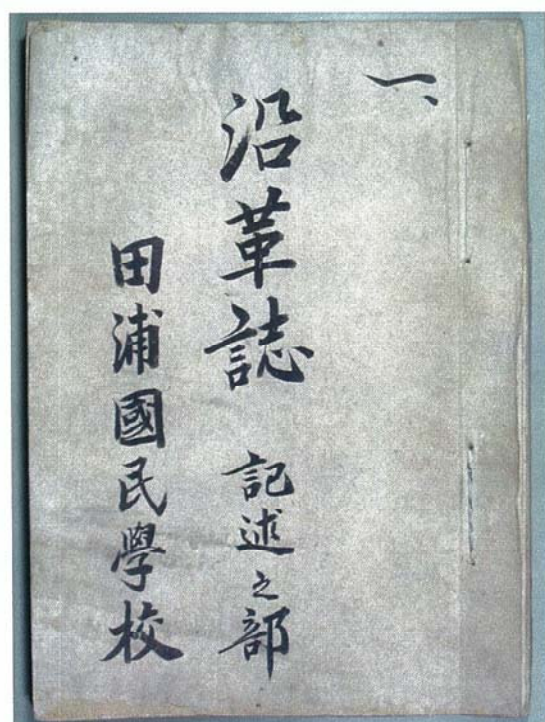 一、
沿革誌 記述之部
田浦國民學校